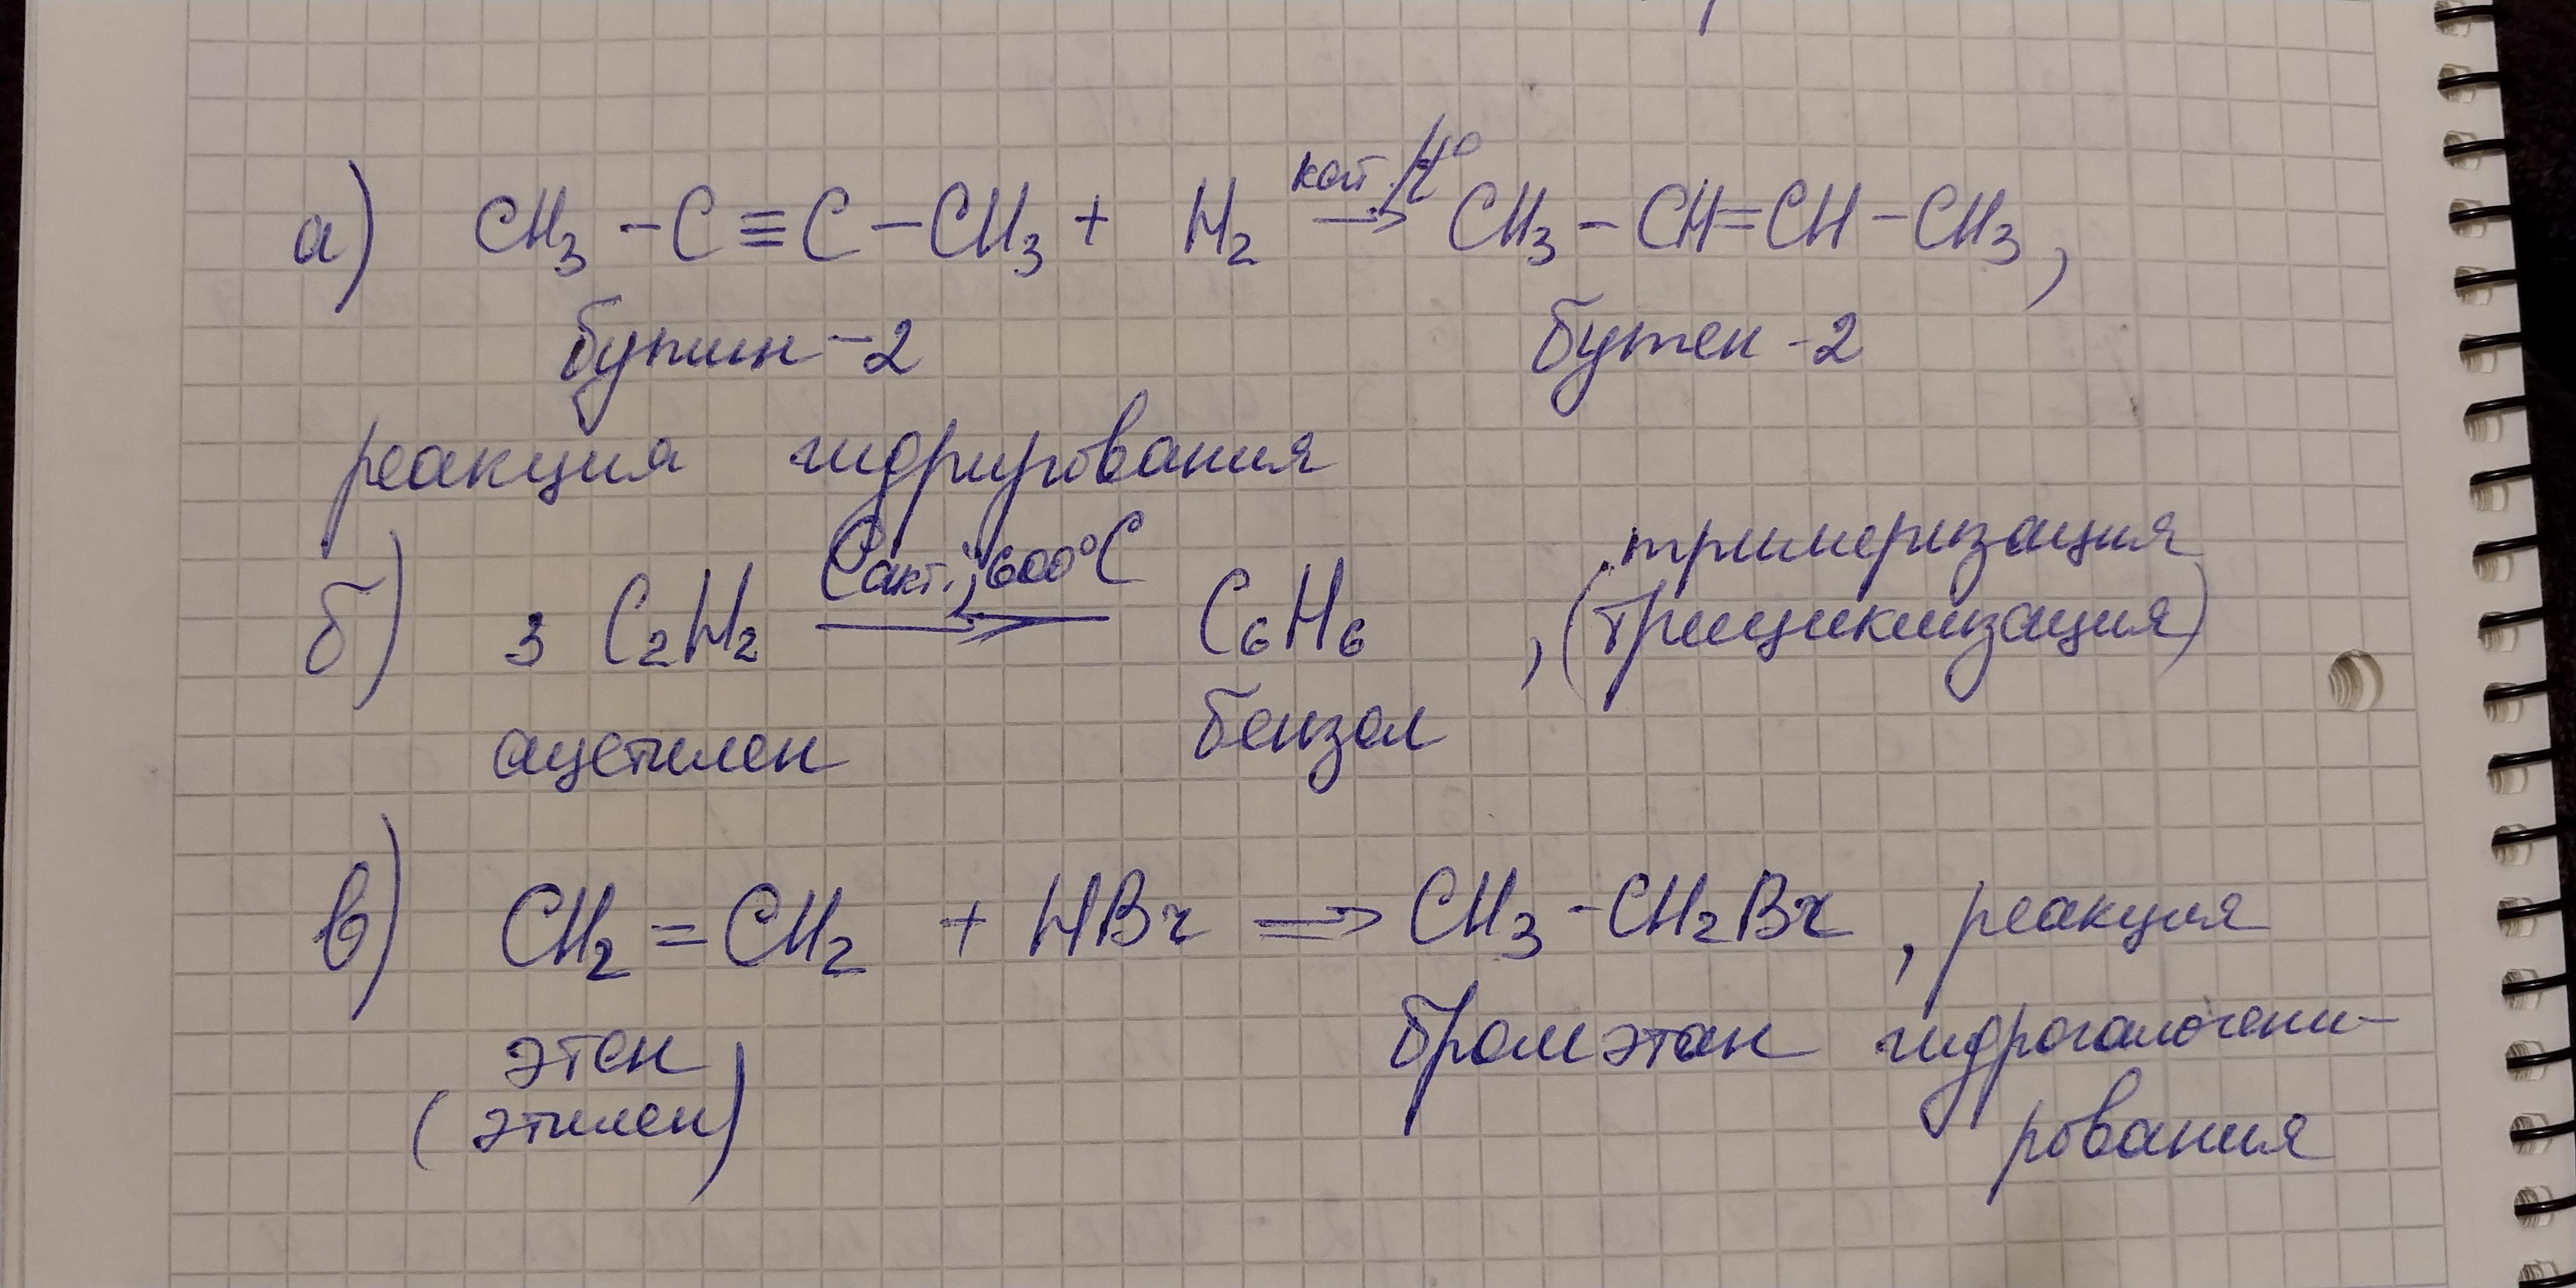 а) CH₃ – C ≡ C – CH₃ + H₂ кат. t° → CH₃ – CH = CH – CH₃,
бутин – 2 бутен – 2
реакция гидрирования
б) 3 C₂H₂ Cакт., 600°C → C₆H₆ , тримеризация
(трициклизация)
ацетилен бензол
в) CH₂ = CH₂ + HBr → CH₃ – CH₂Br , реакция
этен бромэтан гидрогалогени-
(этилен) рования